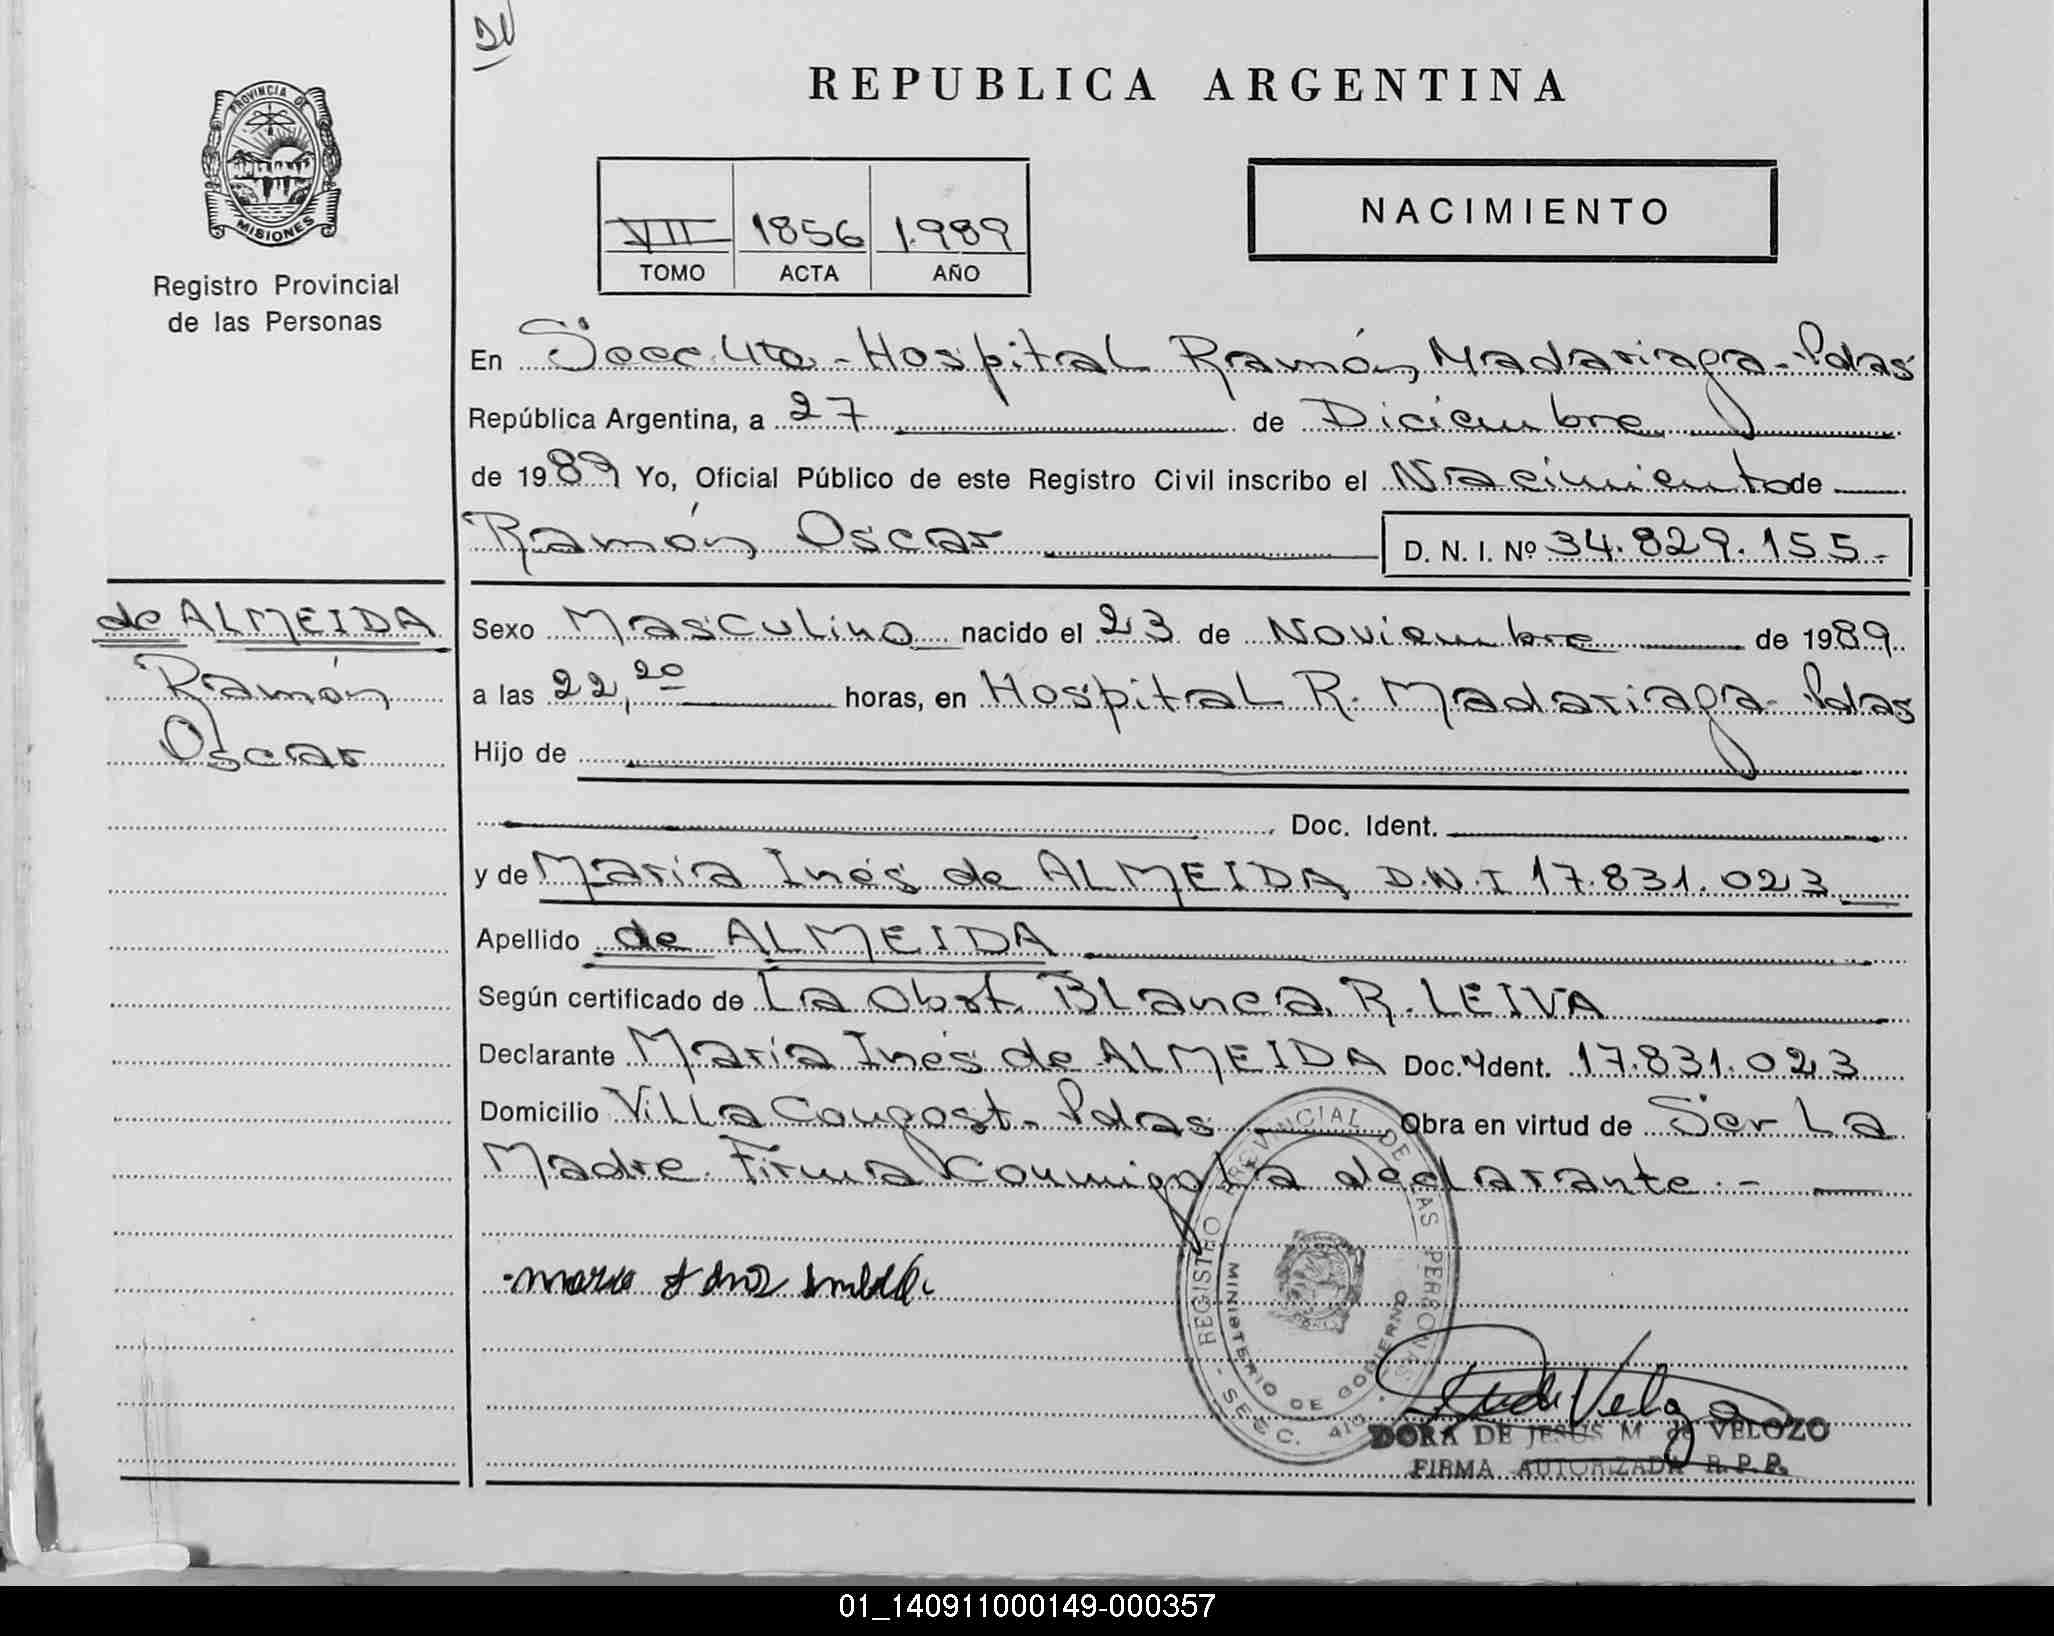 REPUBLICA ARGENTINA
PROVINCIA DE
MISIONES
Registro Provincial
de las Personas
VII 1856 1.989
TOMO ACTA AÑO
NACIMIENTO
En Secc. 4ta - Hospital Ramón Madariaga - Pdas
República Argentina, a 27 de Diciembre
de 1989 Yo, Oficial Público de este Registro Civil inscribo el Nacimiento de
Ramón Oscar D. N. I. Nº 34.829.155.-
de ALMEIDA
Ramón
Oscar
Sexo Masculino nacido el 23 de Noviembre de 1989
a las 22,20 horas, en Hospital R. Madariaga - Pdas
Hijo de
Doc. Ident.
y de María Inés de ALMEIDA D.N.I 17.831.023
Apellido de ALMEIDA
Según certificado de La Obst. Blanca R. LEIVA
Declarante María Inés de ALMEIDA Doc. Ident. 17.831.023
Domicilio Villa - Pdas Obra en virtud de Ser La
Madre. Firma Conmigo La declarante.-
REGISTRO PROVINCIAL DE LAS PERSONAS
MINISTERIO DE GOBIERNO
SECC. 4TA
DORA DE JESUS M de VELOZO
FIRMA AUTORIZADA R.P.P.
01_140911000149-000357